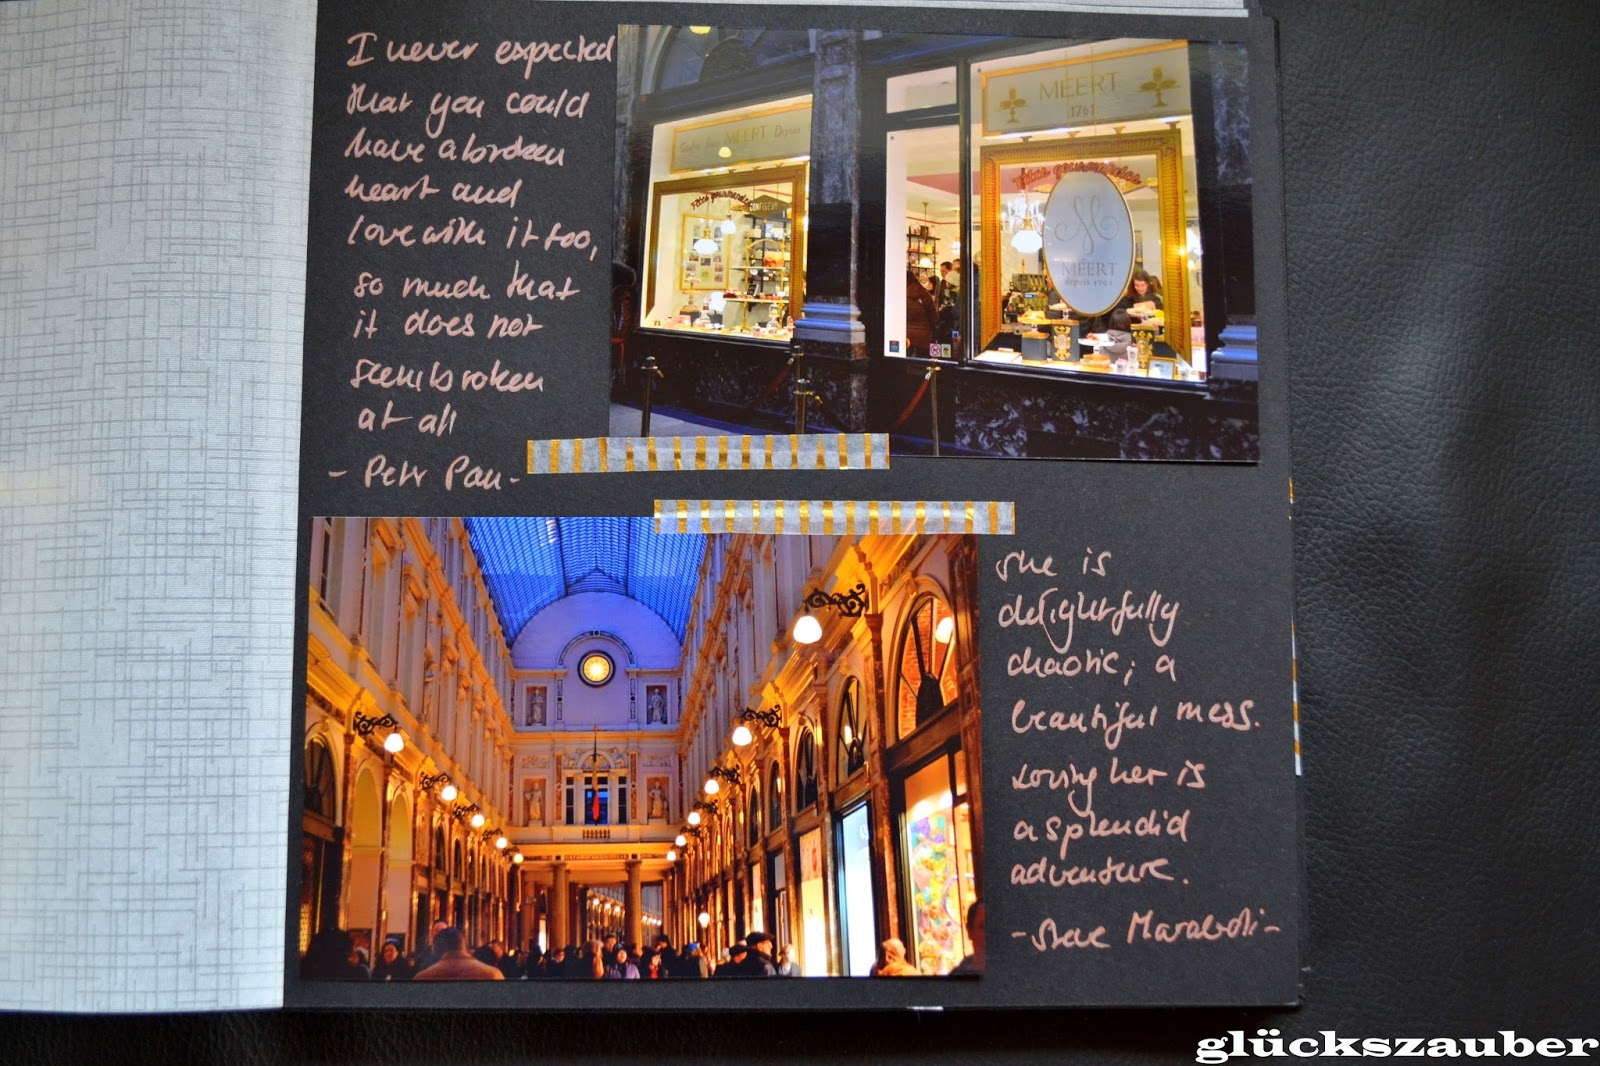 I never expected
that you could
have a broken
heart and
love with it too,
so much that
it does not
seem broken
at all
- Peter Pan -
MEERT
1761
MEERT Depuis
Fêtes gourmandes
CONFISEUR
Fêtes gourmandes
MEERT
depuis 1761
she is
delightfully
chaotic; a
beautiful mess.
Loving her is
a splendid
adventure.
- Steve Maraboli -
glückszauber